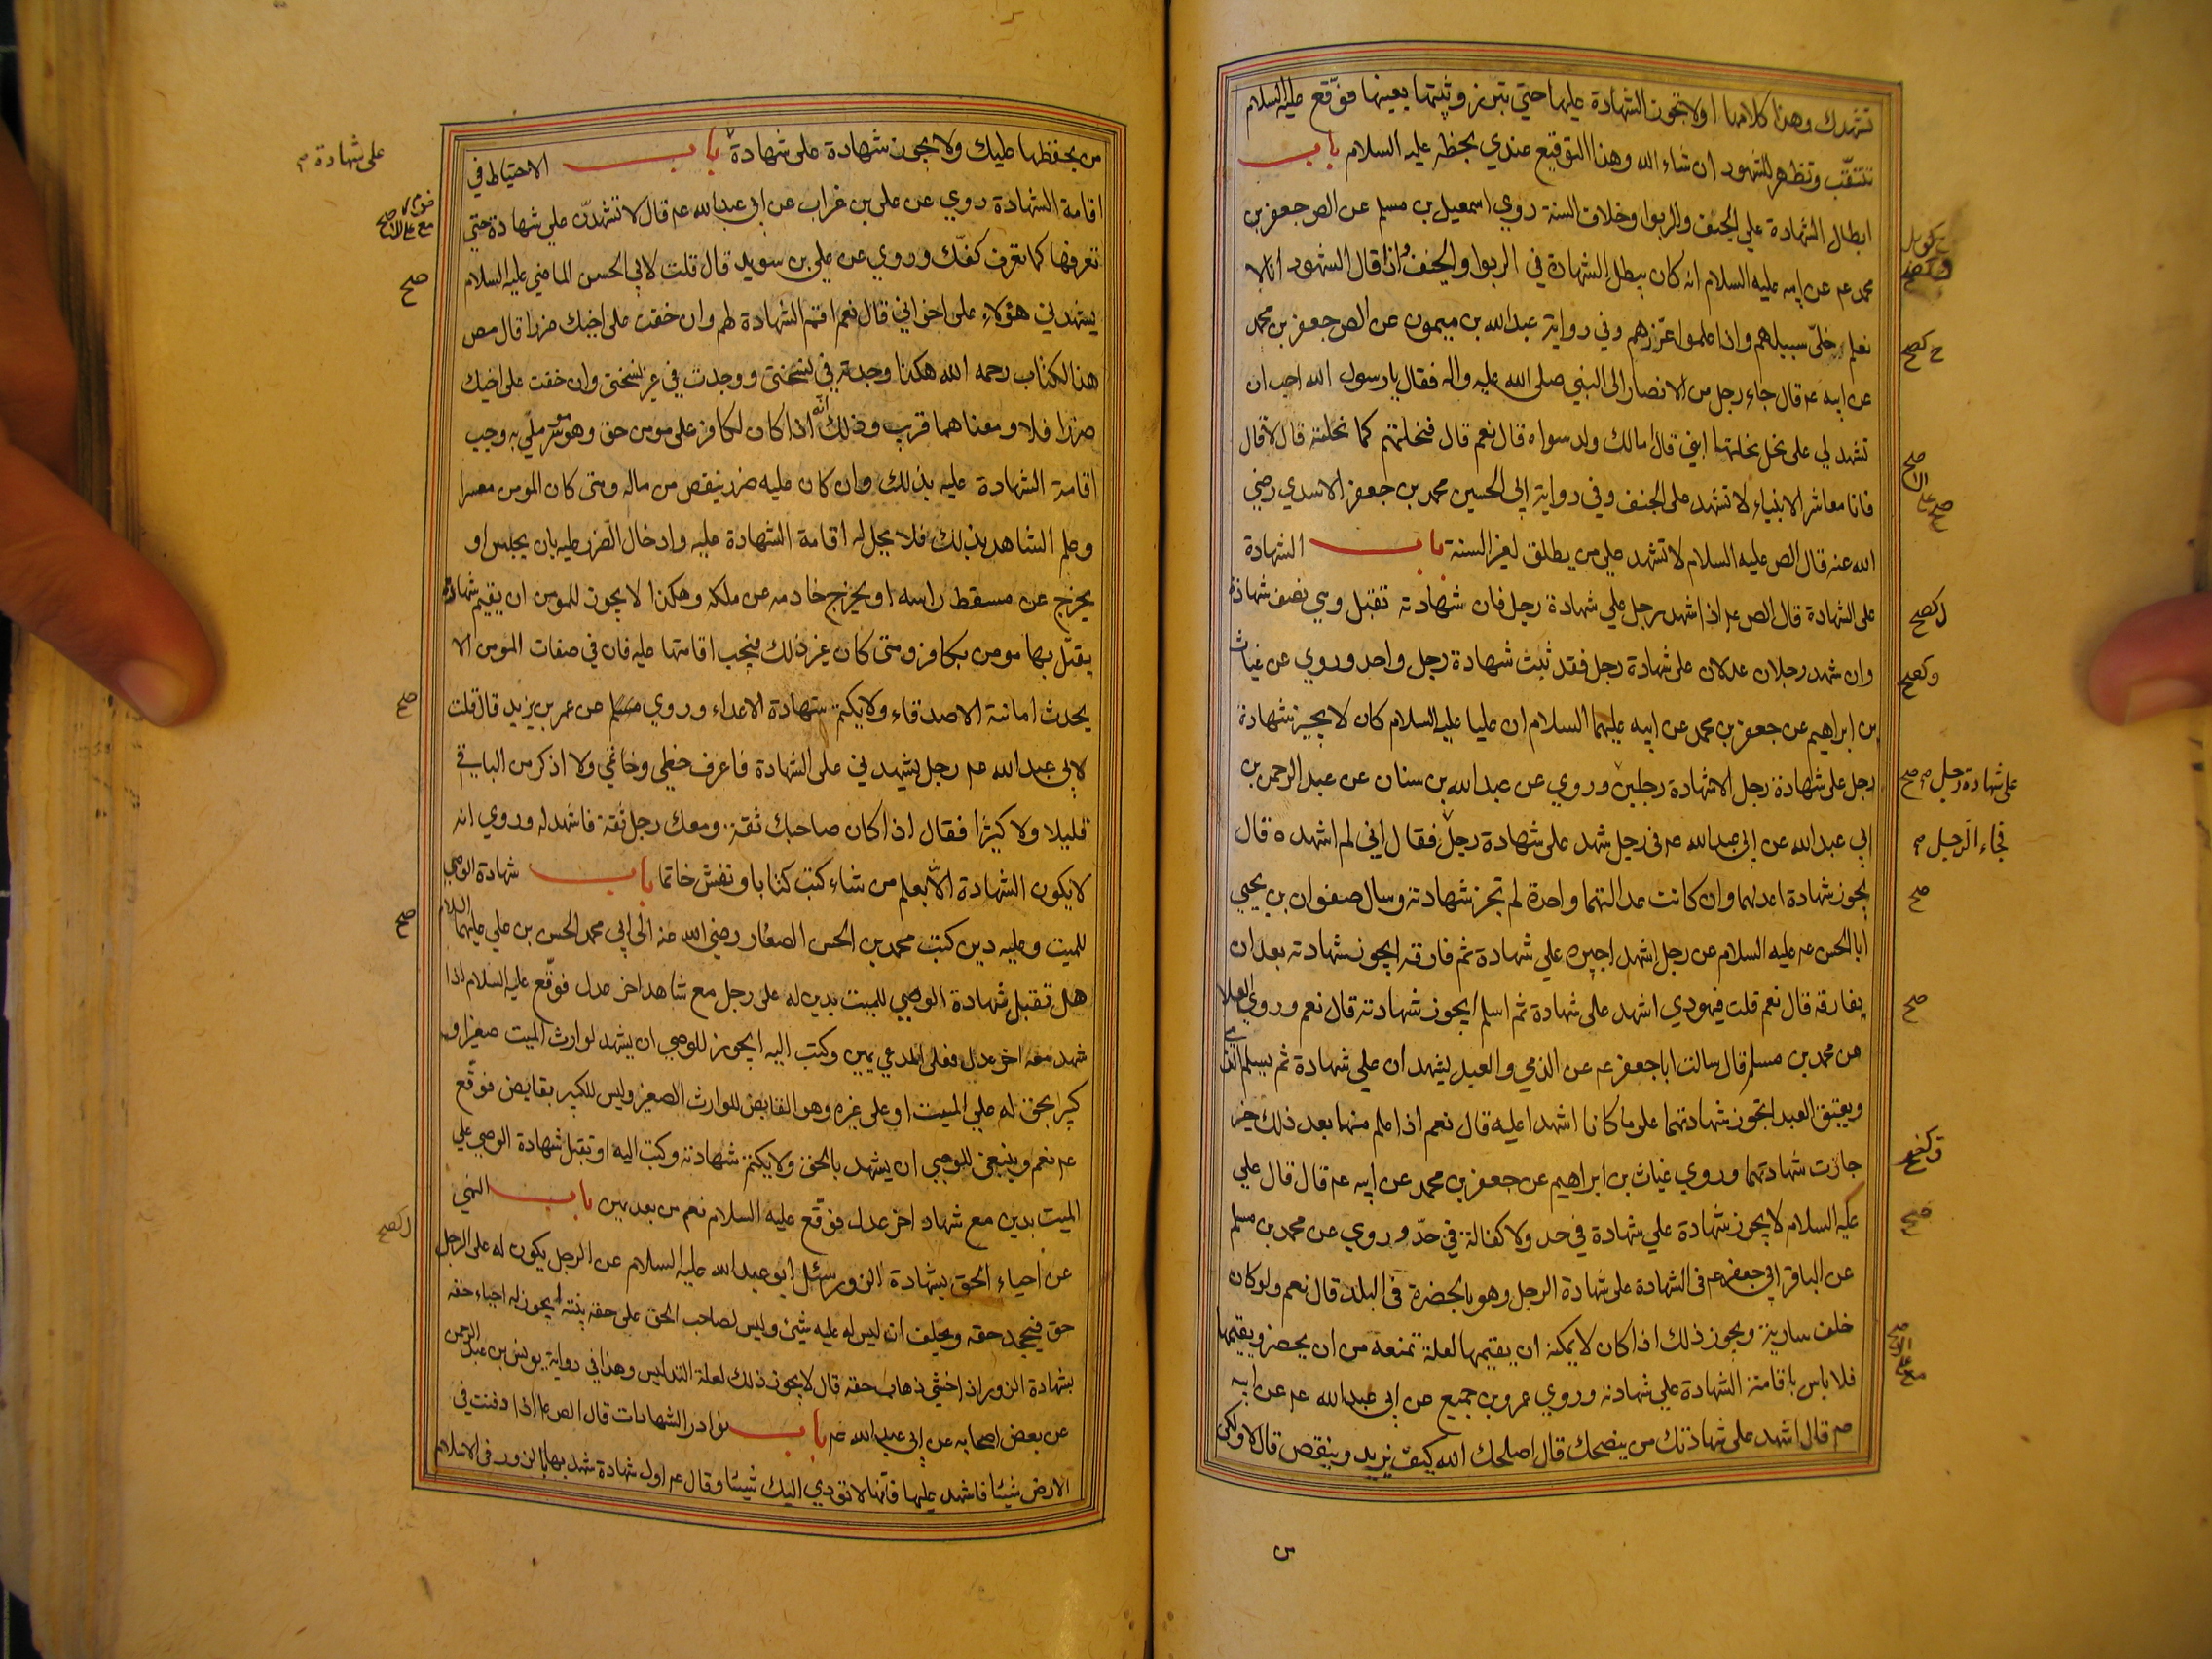 تشهدك وهذا كلامها اولا تجوز الشهادة عليها حتي تبرز وثبتها بعينها فوقع عليه السلام
تتنقب وتظهر للشهود ان شاء الله وهذا التوقيع عندي بخطه عليه السلام باب
ابطال الشهادة علي الجنف والربوا وخلاف السنة روي اسمعيل بن مسلم عن الص جعفر بن
محمد عه عن ابيه عليه السلام انه كان يبطل الشهادة في الربوا والجنف واذا قال الشهود انا لا
نعلم خلي سبيلهم واذا علموا عزرهم وفي رواية عبد الله بن ميمون عن الص جعفر بن محمد
عن ابيه عه قال جاء رجل من الانصار الى النبي صلى الله عليه واله فقال يا رسول الله احب ان
تشهد لي على نحل نحلتها ابني قال امالك ولد سواه قال نعم قال فنحلتهم كما نحلته قال لا قال
فانا معاشر الانبياء لا نشهد على الجنف وفي رواية ابي الحسين محمد بن جعفر الاسدي رضي
الله عنه قال الص عليه السلام لا تشهد علي من يطلق لغير السنة باب الشهادة
على الشهادة قال الص عه اذا شهد رجل علي شهادة رجل فان شهادته تقبل وهي نصف شهادة
وان شهد رجلان عدلان على شهادة رجل فقد ثبت شهادة رجل واحد وروي عن غياث
بن ابراهيم عن جعفر بن محمد عن ابيه عليهما السلام ان عليا عليه السلام كان لا يجيز شهادة
رجل على شهادة رجل الا شهادة رجلين وروي عن عبد الله بن سنان عن عبد الرحمن بن
على شهادة رجل صح
ابي عبد الله عن ابي عبد الله عه في رجل شهد على شهادة رجل فقال اني لم اشهده قال
فجاء الرجل
يجوز شهادة اعدلهما وان كانت عدالتهما واحدة لم تجز شهادته وسال صفوان بن يحيي
ابا الحسن عه عليه السلام عن رجل اشهد اجيره علي شهادة ثم فارقه ايجوز شهادته بعد ان
يفارقه قال نعم قلت فيهودي اشهد على شهادة ثم اسلم ايجوز شهادته قال نعم وروي العلا
عن محمد بن مسلم قال سالت ابا جعفر عه عن الذمي والعبد يشهدان علي شهادة ثم يسلم الذمي
ويعتق العبد اتجوز شهادتهما على ما كانا اشهدا عليه قال نعم اذا علم منها بعد ذلك خير
جازت شهادتهما وروي غياث بن ابراهيم عن جعفر بن محمد عن ابيه عه قال قال علي
عليه السلام لا يجوز شهادة علي شهادة في حد ولا كفالة في حد وروي عن محمد بن مسلم
عن الباقر ابي جعفر عه في الشهادة على شهادة الرجل وهو بالحضرة في البلد قال نعم ولو كان
خلف سارية ويجوز ذلك اذا كان لا يمكنه ان يقيمها لعلة تمنعه من ان يحضر ويقيمها
فلا باس باقامة الشهادة علي شهادته وروي عمرو بن جميع عن ابي عبد الله عه عن ابيه
عه قال اشهد على شهادتك من ينصحك قال اصلحك الله كيف يزيد وينقص قال لا ولكن
من يحفظها عليك ولا يجوز شهادة على شهادة باب الاحتياط في
على شهادة
اقامة الشهادة روي عن علي بن غراب عن ابي عبد الله عه قال لا تشهدن علي شهادة حتي
تعرفها كما تعرف كفك وروي عن علي بن سويد قال قلت لابي الحسن الماضي عليه السلام
يشهدني هؤلاء على اخواني قال نعم اقم الشهادة لهم وان خفت على اخيك ضررا قال مص
هذا الكتاب رحمه الله هكذا وجدته في نسختي ووجدت في غير نسختي وان خفت على اخيك
ضررا فلا ومعناهما قريب وذلك انه اذا كان لكافر على مومن حق وهو موسر ملي به وجب
اقامة الشهادة عليه بذلك وان كان عليه ضرر ينقص من ماله ومتى كان المومن معسرا
وعلم الشاهد بذلك فلا يحل له اقامة الشهادة عليه وادخال الضرر عليه بان يحبس او
يخرج عن مسقط راسه او يخرج خادمه عن ملكه وهكذا لا يجوز للمومن ان يقيم شهادة
يقتل بها مومن بكافر ومتى كان غير ذلك فيجب اقامتها عليه فان في صفات المومن الا
يحدث امانته الاصدقاء ولا يكتم شهادة الاعداء وروي عن عمر بن يزيد قال قلت
لابي عبد الله عه رجل يشهدني على الشهادة فاعرف خطي وخاتمي ولا اذكر من الباقي
قليلا ولا كثيرا فقال اذا كان صاحبك ثقة ومعك رجل ثقة فاشهد له وروي انه
لا يكون الشهادة الا بعلم من شاء كتب كتابا ونقش خاتما باب شهادة الوصي
للميت وعليه دين كتب محمد بن الحسن الصفار رضي الله عنه الى ابي محمد الحسن بن علي عليهما السلام
هل تقبل شهادة الوصي للميت بدين له على رجل مع شاهد اخر عدل فوقع عليه السلام اذا
شهد معه اخر عدل فعلى المدعي يمين وكتب اليه ايجوز للوصي ان يشهد لوارث الميت صغيرا و
كبيرا بحق له علي الميت او على غيره وهو القابض للوارث الصغير وليس للكبير بقابض فوقع
عه نعم وينبغي للوصي ان يشهد بالحق ولا يكتم شهادته وكتب اليه او تقبل شهادة الوصي علي
الميت بدين مع شهاد اخر عدل فوقع عليه السلام نعم من بعد يمين باب النهي
عن احياء الحق بشهادة الزور سئل ابو عبد الله عليه السلام عن الرجل يكون له على الرجل
حق فيجحد حقه ويحلف ان ليس له عليه شيئ وليس لصاحب الحق على حقه بينة ايجوز له احياء حقه
بشهادة الزور اذا خشي ذهاب حقه قال لا يجوز ذلك لعلة التدليس وهذا في رواية يونس بن عبد الرحمن
عن بعض اصحابه عن ابي عبد الله عه باب نوادر الشهادات قال الص عه اذا دفنت في
الارض شيئا فاشهد عليها فانها لا تؤدي اليك شيئا وقال عه اول شهادة شهد بها بالزور في الاسلام